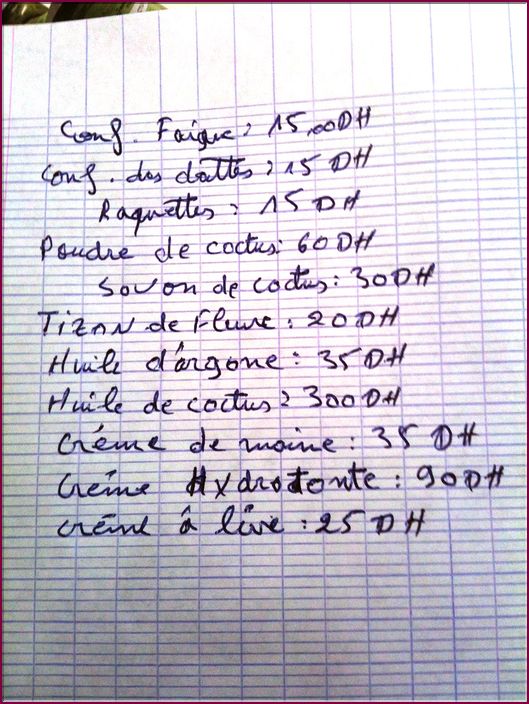 Conf. Faigue: 15,00DH
Conf. des dattes: 15 DH
Raquettes: 15 DH
Poudre de cactus: 60DH
Savon de cactus: 30DH
Tizan de Fleure: 20DH
Huile d'argane: 35DH
Huile de cactus: 300DH
Crème de maine: 35 DH
Crème Hydratante: 90DH
Crème à lève: 25DH